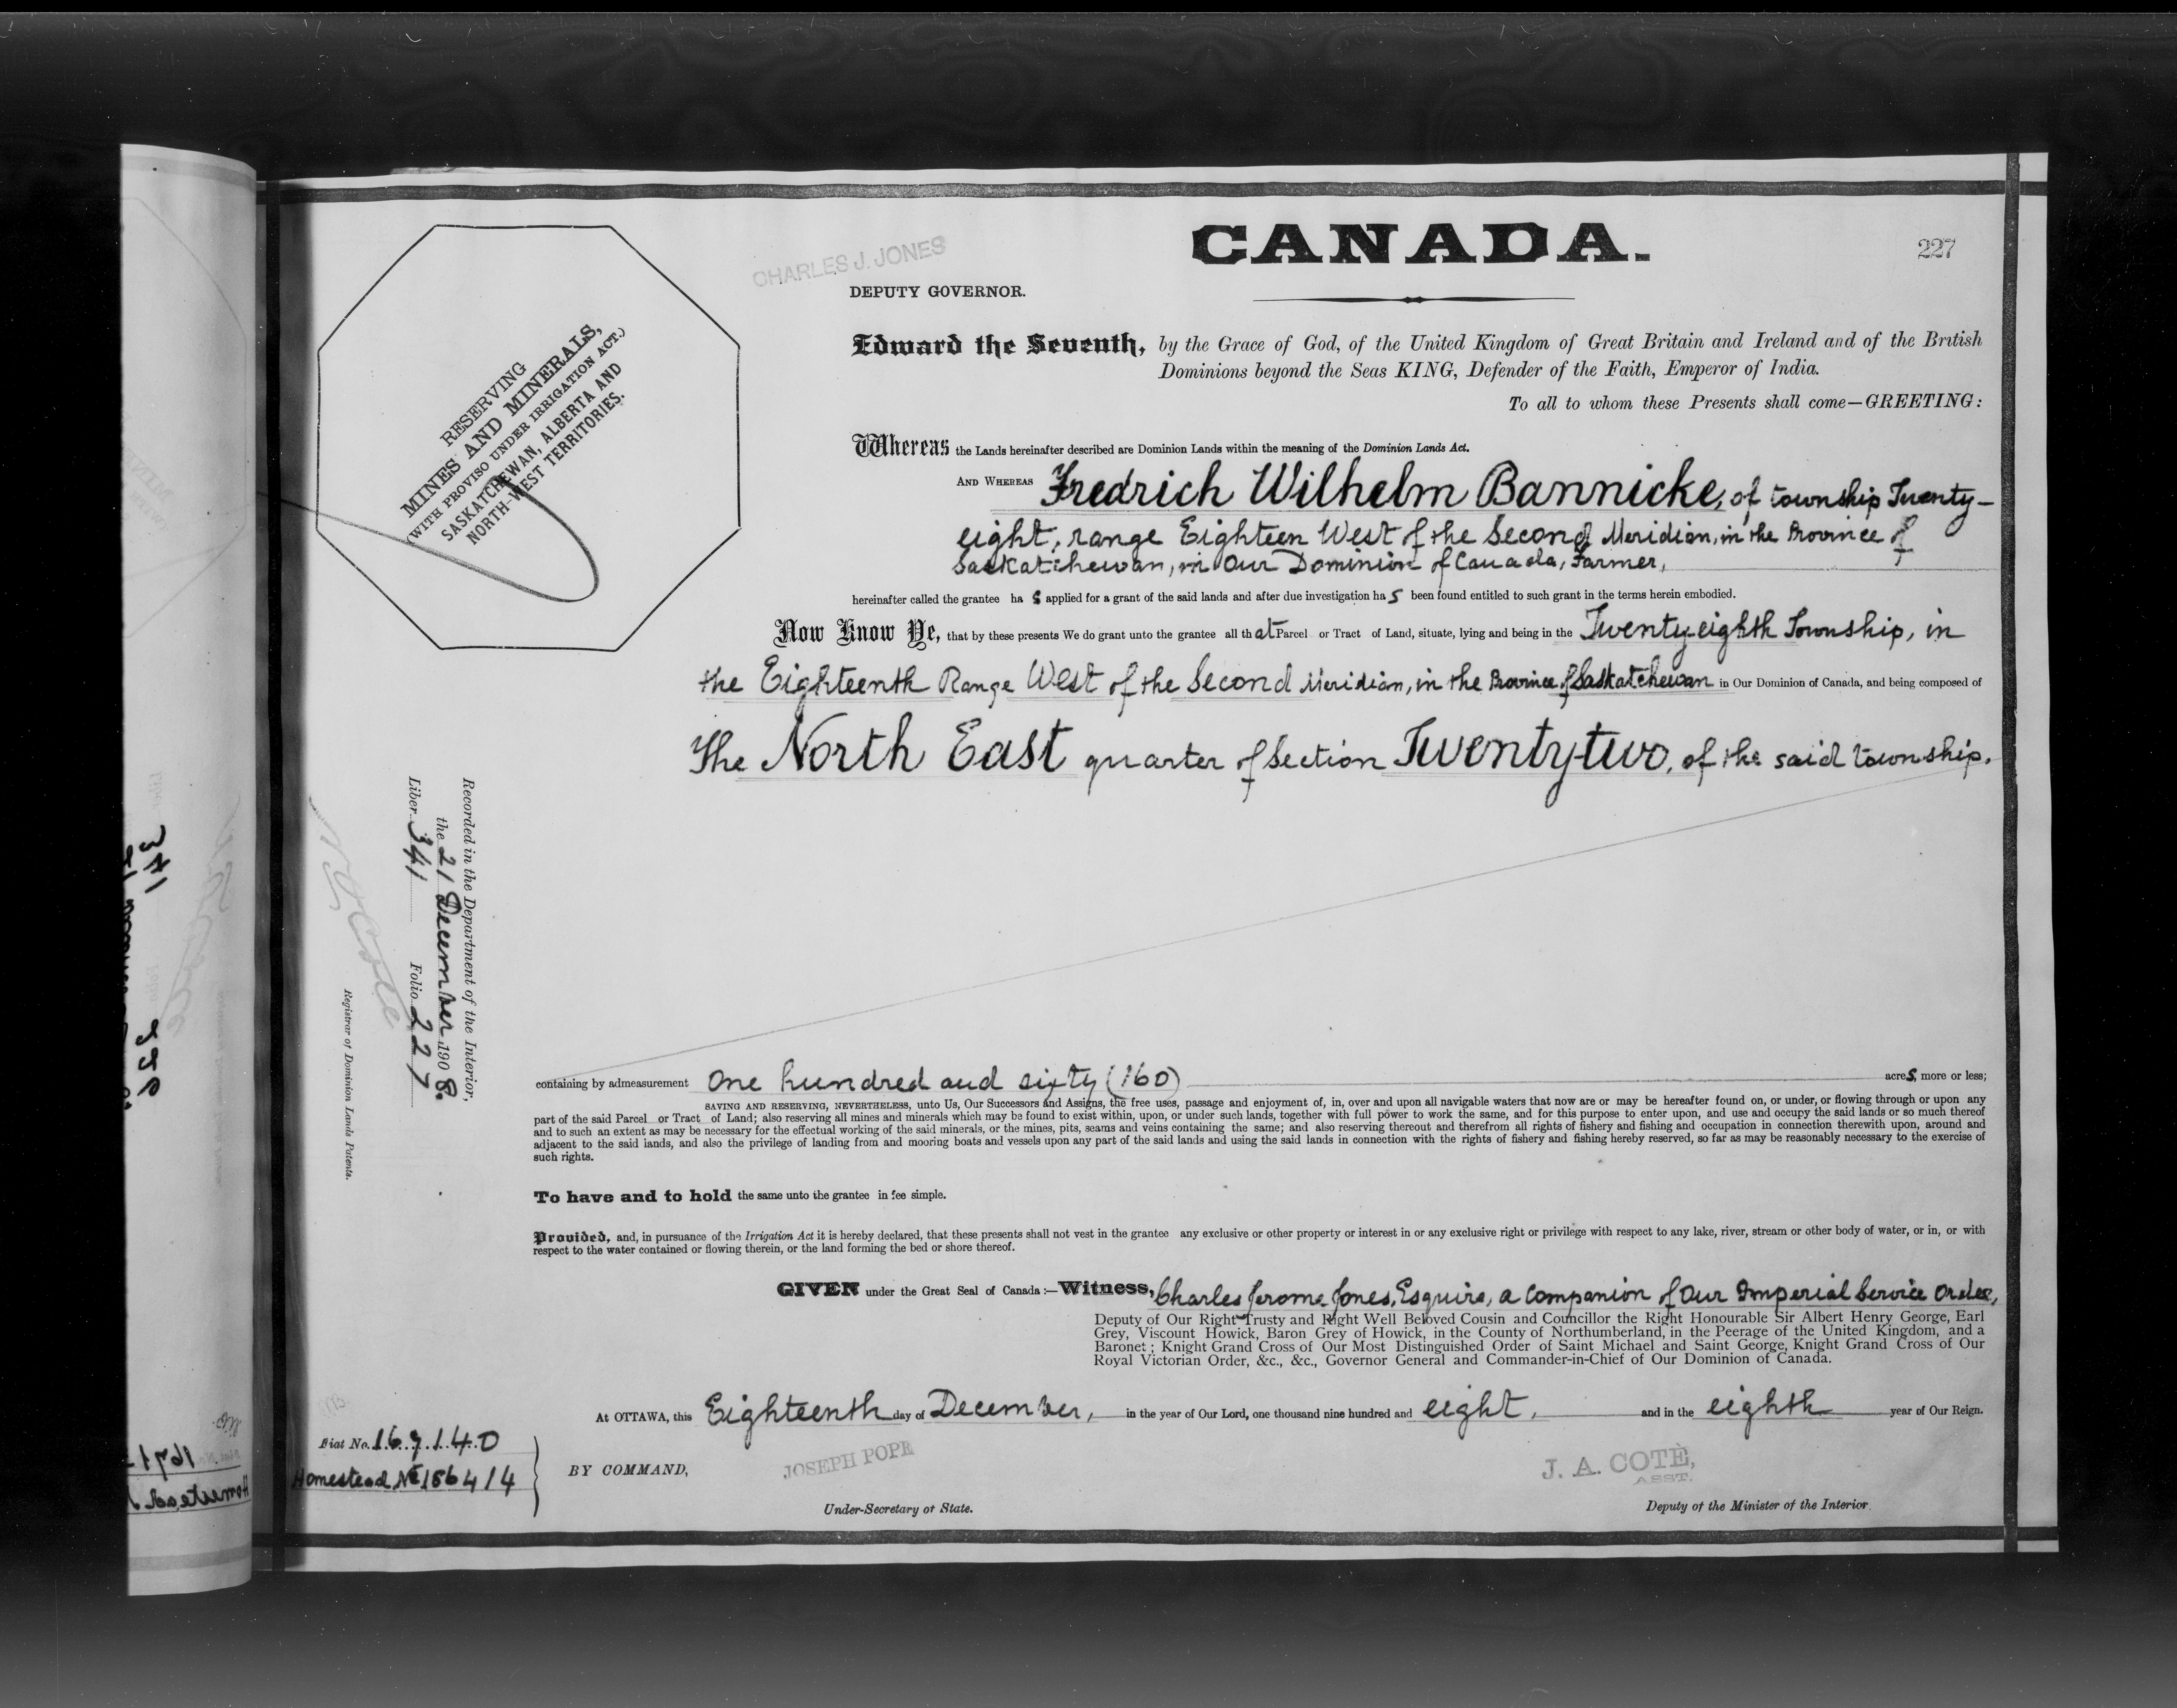 CANADA.
227
CHARLES J. JONES
DEPUTY GOVERNOR.
RESERVING
MINES AND MINERALS,
(WITH PROVISO UNDER IRRIGATION ACT.)
SASKATCHEWAN, ALBERTA AND
NORTH-WEST TERRITORIES.
Edward the Seventh, by the Grace of God, of the United Kingdom of Great Britain and Ireland and of the British
Dominions beyond the Seas KING, Defender of the Faith, Emperor of India.
To all to whom these Presents shall come—GREETING:
Whereas the Lands hereinafter described are Dominion Lands within the meaning of the Dominion Lands Act.
AND WHEREAS Fredrich Wilhelm Bannicke, of township Twenty-
eight, range Eighteen West of the Second Meridian, in the Province of
Saskatchewan, in Our Dominion of Canada, Farmer,
hereinafter called the grantee has applied for a grant of the said lands and after due investigation has been found entitled to such grant in the terms herein embodied.
Now Know Ye, that by these presents We do grant unto the grantee all that Parcel or Tract of Land, situate, lying and being in the Twenty-eighth Township, in
the Eighteenth Range West of the Second Meridian, in the Province of Saskatchewan in Our Dominion of Canada, and being composed of
The North East quarter of Section Twenty-two, of the said township.
Recorded in the Department of the Interior,
the 21 December 1908.
Liber 341 Folio 227
Registrar of Dominion Lands Patents.
containing by admeasurement One hundred and sixty (160) acres, more or less;
SAVING AND RESERVING, NEVERTHELESS, unto Us, Our Successors and Assigns, the free uses, passage and enjoyment of, in, over and upon all navigable waters that now are or may be hereafter found on, or under, or flowing through or upon any
part of the said Parcel or Tract of Land; also reserving all mines and minerals which may be found to exist within, upon, or under such lands, together with full power to work the same, and for this purpose to enter upon, and use and occupy the said lands or so much thereof
and to such an extent as may be necessary for the effectual working of the said minerals, or the mines, pits, seams and veins containing the same; and also reserving thereout and therefrom all rights of fishery and fishing and occupation in connection therewith upon, around and
adjacent to the said lands, and also the privilege of landing from and mooring boats and vessels upon any part of the said lands and using the said lands in connection with the rights of fishery and fishing hereby reserved, so far as may be reasonably necessary to the exercise of
such rights.
To have and to hold the same unto the grantee in fee simple.
Provided, and, in pursuance of the Irrigation Act it is hereby declared, that these presents shall not vest in the grantee any exclusive or other property or interest in or any exclusive right or privilege with respect to any lake, river, stream or other body of water, or in, or with
respect to the water contained or flowing therein, or the land forming the bed or shore thereof.
GIVEN under the Great Seal of Canada:—Witness, Charles Jerome Jones, Esquire, a Companion of Our Imperial Service Order,
Deputy of Our Right Trusty and Right Well Beloved Cousin and Councillor the Right Honourable Sir Albert Henry George, Earl
Grey, Viscount Howick, Baron Grey of Howick, in the County of Northumberland, in the Peerage of the United Kingdom, and a
Baronet; Knight Grand Cross of Our Most Distinguished Order of Saint Michael and Saint George, Knight Grand Cross of Our
Royal Victorian Order, &c., &c., Governor General and Commander-in-Chief of Our Dominion of Canada.
At OTTAWA, this Eighteenth day of December, in the year of Our Lord, one thousand nine hundred and eight, and in the eighth year of Our Reign.
Fiat No. 167140
Homestead No 156414
BY COMMAND,
JOSEPH POPE
Under-Secretary of State.
J. A. COTÈ,
ASST.
Deputy of the Minister of the Interior.